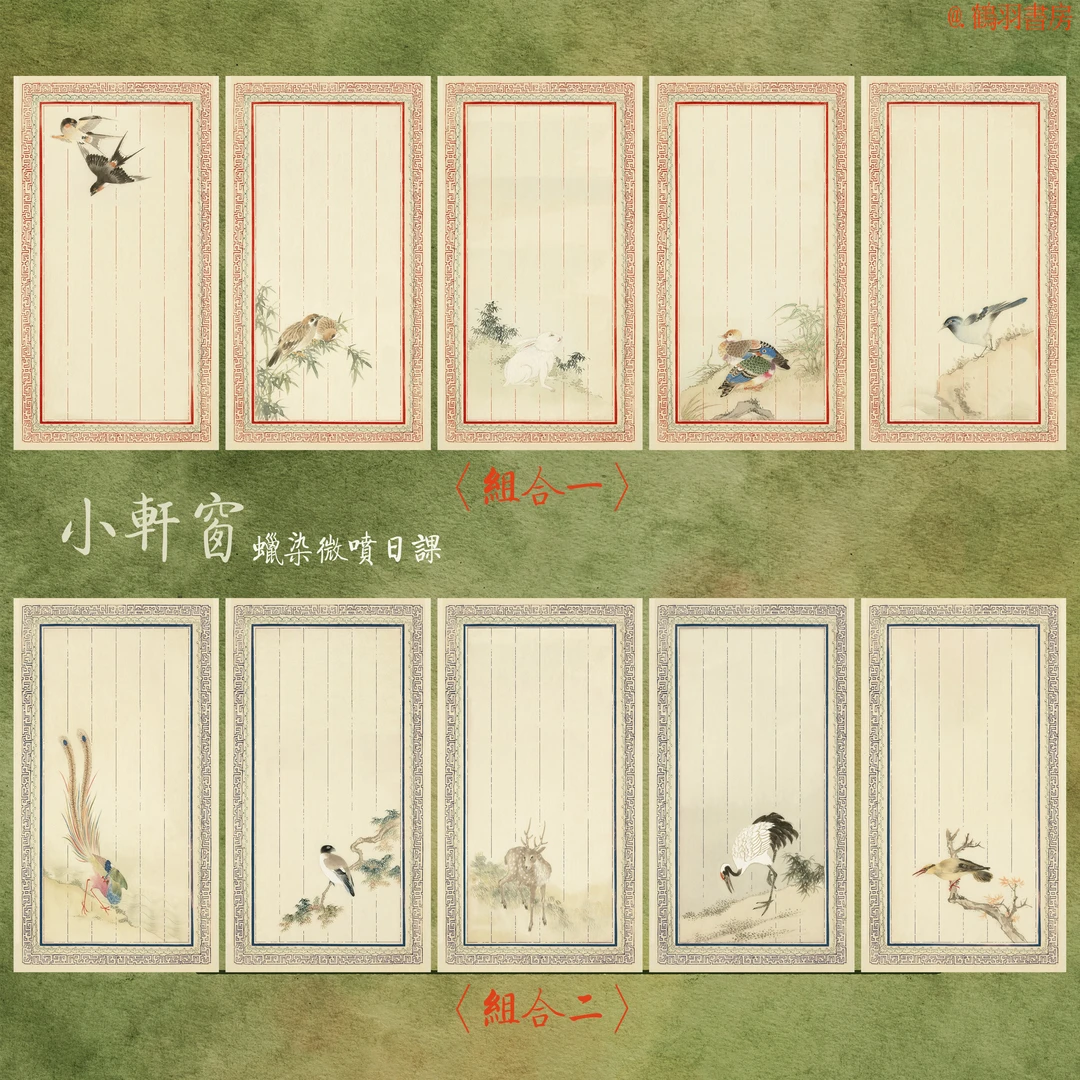 @鶴羽書房
〈組合一〉
小軒窗
蠟染微噴日課
〈組合二〉